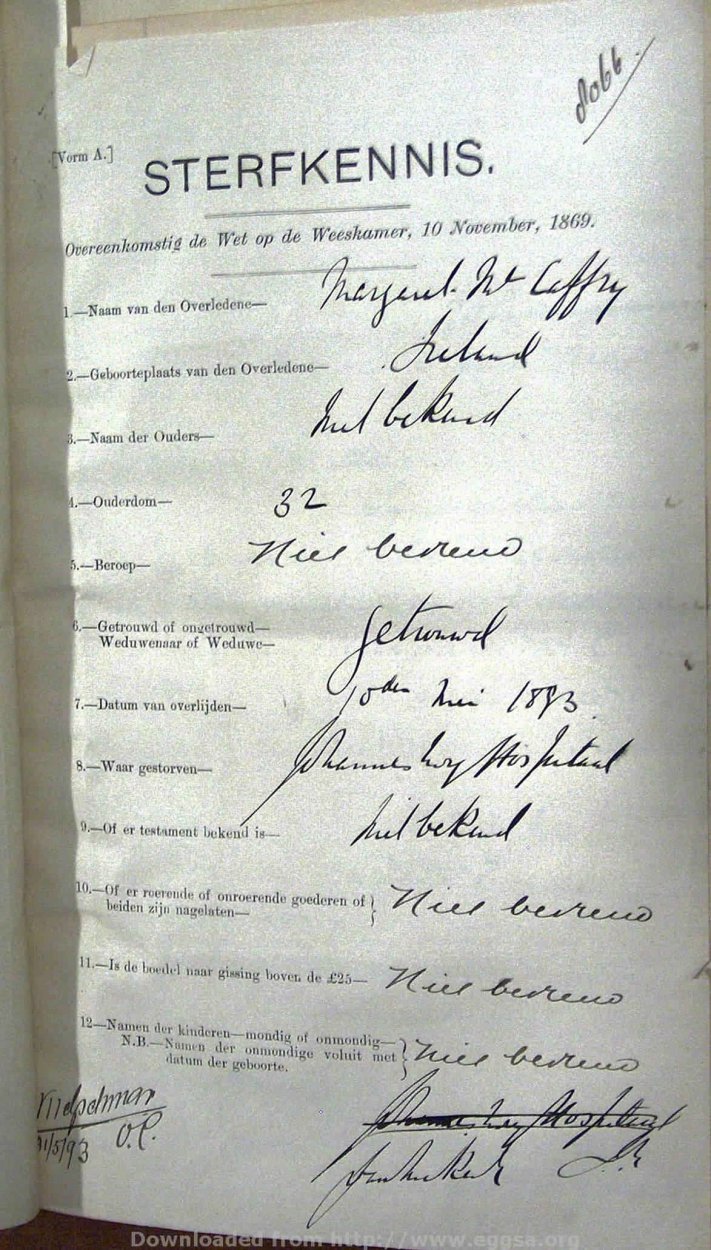 8066.
[Vorm A.]
STERFKENNIS.
Overeenkomstig de Wet op de Weeskamer, 10 November, 1869.
1.—Naam van den Overledene— Margaret Mc Caffry
2.—Geboorteplaats van den Overledene— Ireland
3.—Naam der Ouders— Niet bekend
4.—Ouderdom— 32
5.—Beroep— Niet bekend
6.—Getrouwd of ongetrouwd— Getrouwd
Weduwenaar of Weduwe—
7.—Datum van overlijden— Mei 1893
8.—Waar gestorven— Johannesburg Hospitaal
9.—Of er testament bekend is— Niet bekend
10.—Of er roerende of onroerende goederen of } Niet bekend
beiden zijn nagelaten—
11.—Is de boedel naar gissing boven de £25— Niet bekend
12—Namen der kinderen—mondig of onmondig— } Niet bekend
N.B.—Namen der onmondige voluit met
datum der geboorte.
Johannesburg Hospitaal
31/5/93
Downloaded from http://www.eggsa.org